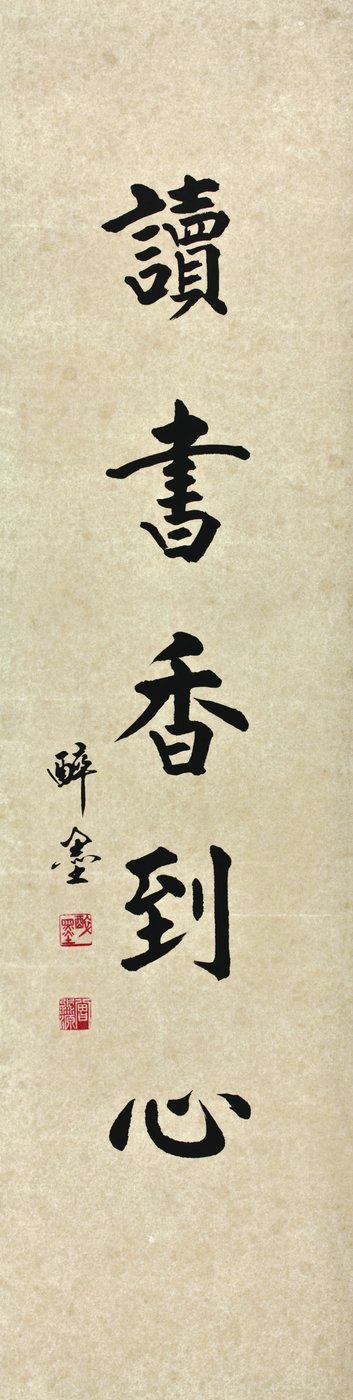 讀書香到心
醉墨